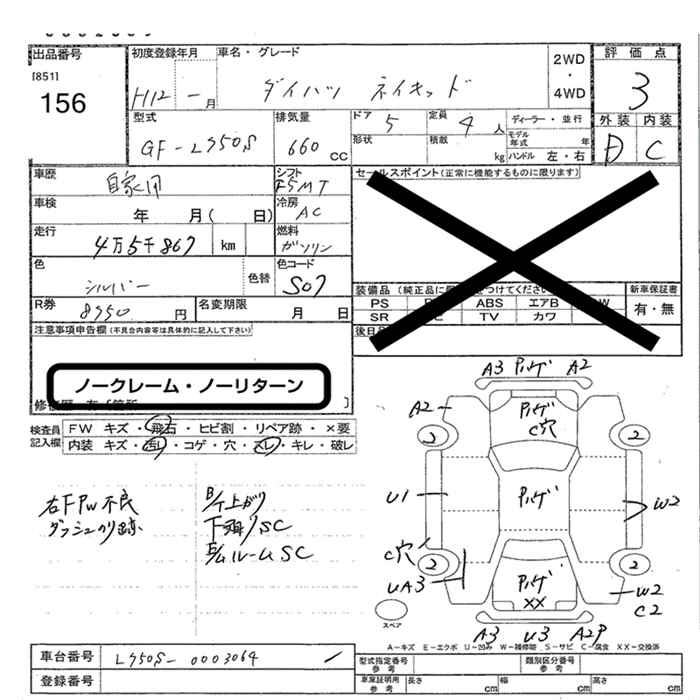 出品番号 初度登録年月 車名・グレード 2WD・4WD 評価点
[851]
156 H12 - 月 ダイハツ ネイキッド 3
型式 排気量 ドア 5 定員 4 人 ディーラー・並行 外装 内装
GF-L750S 660 CC 形状 積載 kg モデル年式 年 ハンドル 左・右 D C
車歴 自家用 シフト F5MT セールスポイント (正常に機能するものに限ります)
車検 年 月( 日) 冷房 AC
走行 4万5千867 km 燃料 ガソリン
色 シルバー 色替 色コード S07
装備品 新車保証書
PS ABS エアB W 有・無
SR TV カワ
R券 8950 円 名変期限 月 日
後日
注意事項申告欄 (不具合内容等は具体的に記入して下さい)
ノークレーム・ノーリターン
検査員記入欄 FW キズ・飛石・ヒビ割・リペア跡・×要
内装 キズ・汚れ・コゲ・穴・スレ・キレ・破レ
右FPW不良
ダッシュのり跡
下廻りSC
E/ムルームSC
A3 A2
A2 C穴
2 2
U1 W2
C穴
2 2
UA3 XX W2
C2
スペア
A3 U3 A2P
A-キズ E-エクボ U-凹み W-補修跡 S-サビ C-腐食 XX-交換済
車台番号 L750S-0003064
登録番号
型式指定番号 参考 類別区分番号 参考
車庫証明用 参考 長さ cm 幅 cm 高さ cm